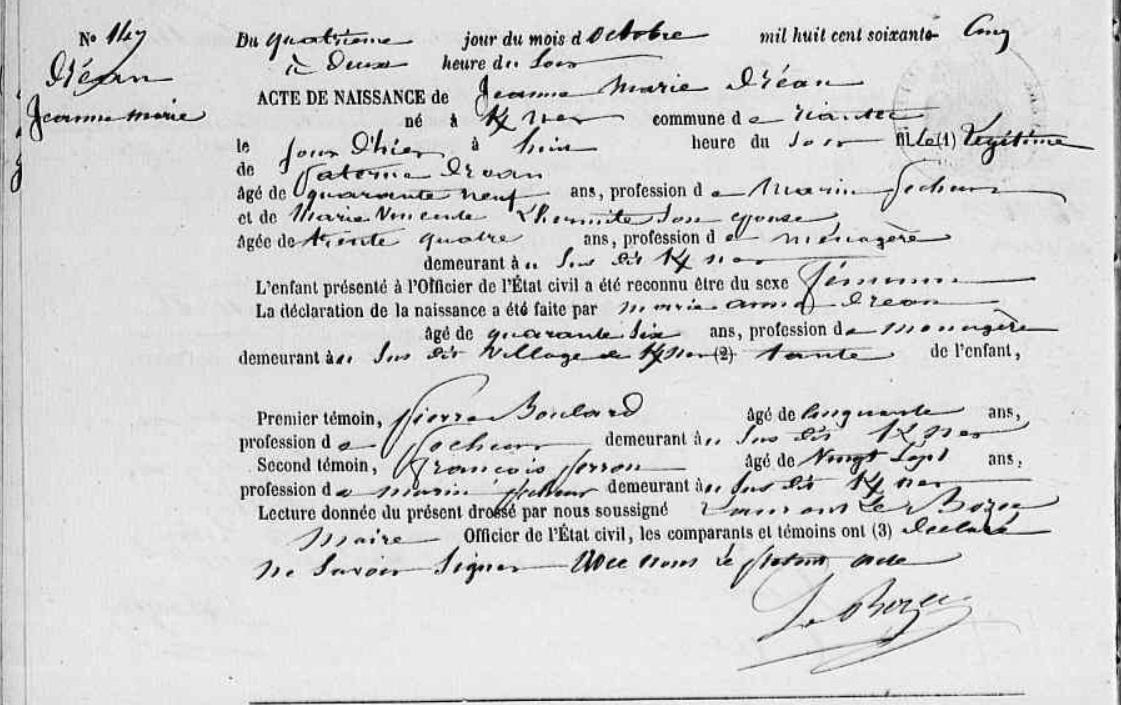 No 147
Dréan
Jeanne marie
Du quatrieme jour du mois d octobre mil huit cent soixante Cinq
à Deux heure du Soir
ACTE DE NAISSANCE de Jeanne Marie Dréan
né à Kner commune de riantec
le jour D'hier à huit heure du Soir fille (1) légitime
de paterne Drean
âgé de quarante neuf ans, profession de Marin pecheur
et de Marie Vincente Lhermite Son epouse
âgée de trente quatre ans, profession de ménagère
demeurant à Sus dit Kner
L'enfant présenté à l'Officier de l'État civil a été reconnu être du sexe féminin
La déclaration de la naissance a été faite par marie anne Drean
âgé de quarante Six ans, profession de Menagère
demeurant à Sus dit Village de Kner (2) tante de l'enfant,
Premier témoin, pierre Boulard âgé de Cinquante ans,
profession de pecheur demeurant à Sus dit Kner
Second témoin, François perron âgé de Vingt Sept ans,
profession de marin pecheur demeurant à Sus dit Kner
Lecture donnée du présent dressé par nous soussigné Le Bozec
Maire Officier de l'État civil, les comparants et témoins ont (3) Declaré
ne Savoir Signer Avec nous le présent acte
Le Bozec